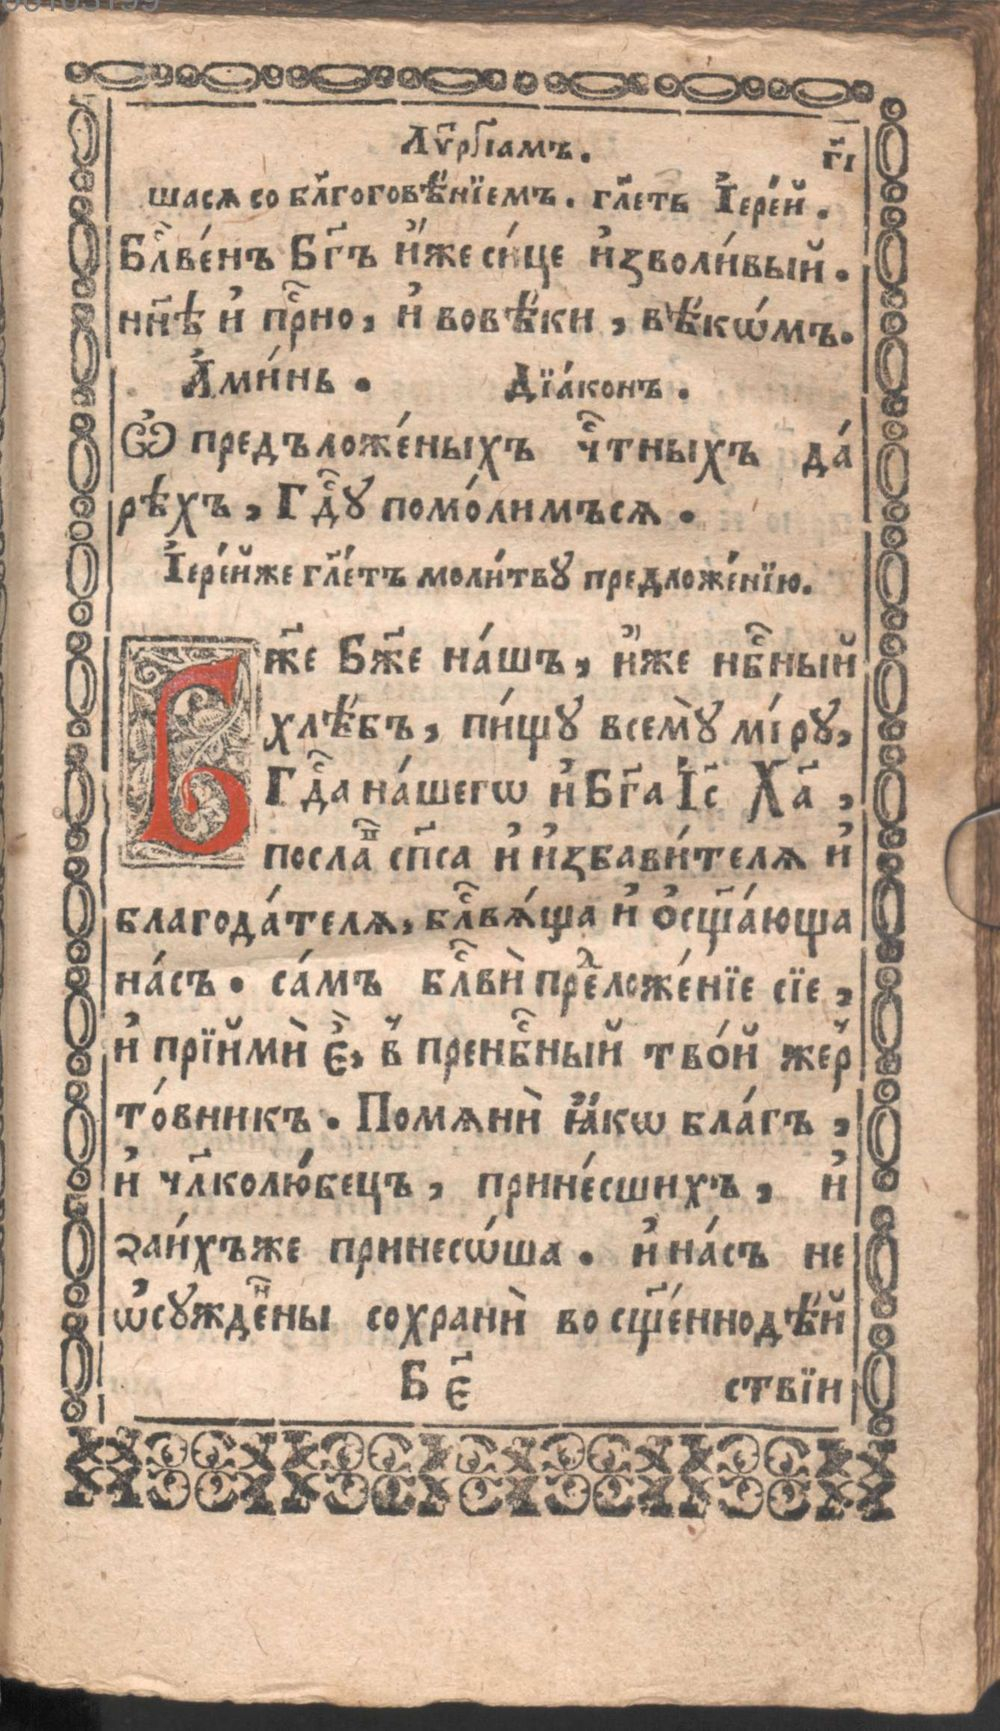 00103199
Лѵ҃ргїамъ. г҃і
шася со бл҃гоговѣ́нїемъ. гл҃етъ І҆ере́й.
Бл҇ве́нъ Бг҃ъ и҆́же си́це и҆зволи́вый.
нн҃ѣ и҆ пр҇но, и҆ вовѣ́ки, вѣ́кѡ́мъ.
А҆ми́нь. Дїа́конъ.
Ѽ предъложе́ныхъ ч҇тныхъ да́
рѣхъ, Гд҇ꙋ помо́лимъся.
І҆ере́йже гл҃етъ моли́твꙋ предложе́нїю.
Бж҃е Бж҃е на́шъ, и҆́же нб҇ный
хлѣ́бъ, пи́щꙋ всемꙋ̀ мі́рꙋ,
Гд҇а на́шегѡ и҆ Бг҃а І҆с҃ Ха҃,
послаⷫ҇ сп҃са и҆ и҆збави́телѧ и҆
благода́телѧ, бл҇вѧ́ща и҆ о҆сщ҃а́юща
на́съ. са́мъ бл҇вѝ преⷣложе́нїе сїе,
и҆ прїймѝ є҆̀, в̾ пренб҇ный тво́й жер̾
то́вникъ. Помѧнѝ ꙗ҆́кѡ бла́гъ,
и҆ чл҃колю́бецъ, прине́сшихъ, и҆
заи́хъже принесѡ́ша. и҆ на́съ не
ѡ҆сꙋждеⷩ҇ны сохранѝ во сщ҃е́ннодѣ́й
Б є҃ ствїи